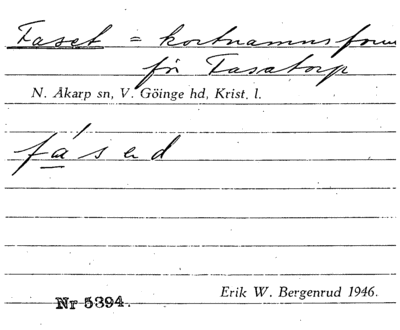 Faset = kortnamnsform
för Fasatorp
N. Åkarp sn, V. Göinge hd, Krist. l.
fá̲sed
Nr 5394.
Erik W. Bergenrud 1946.